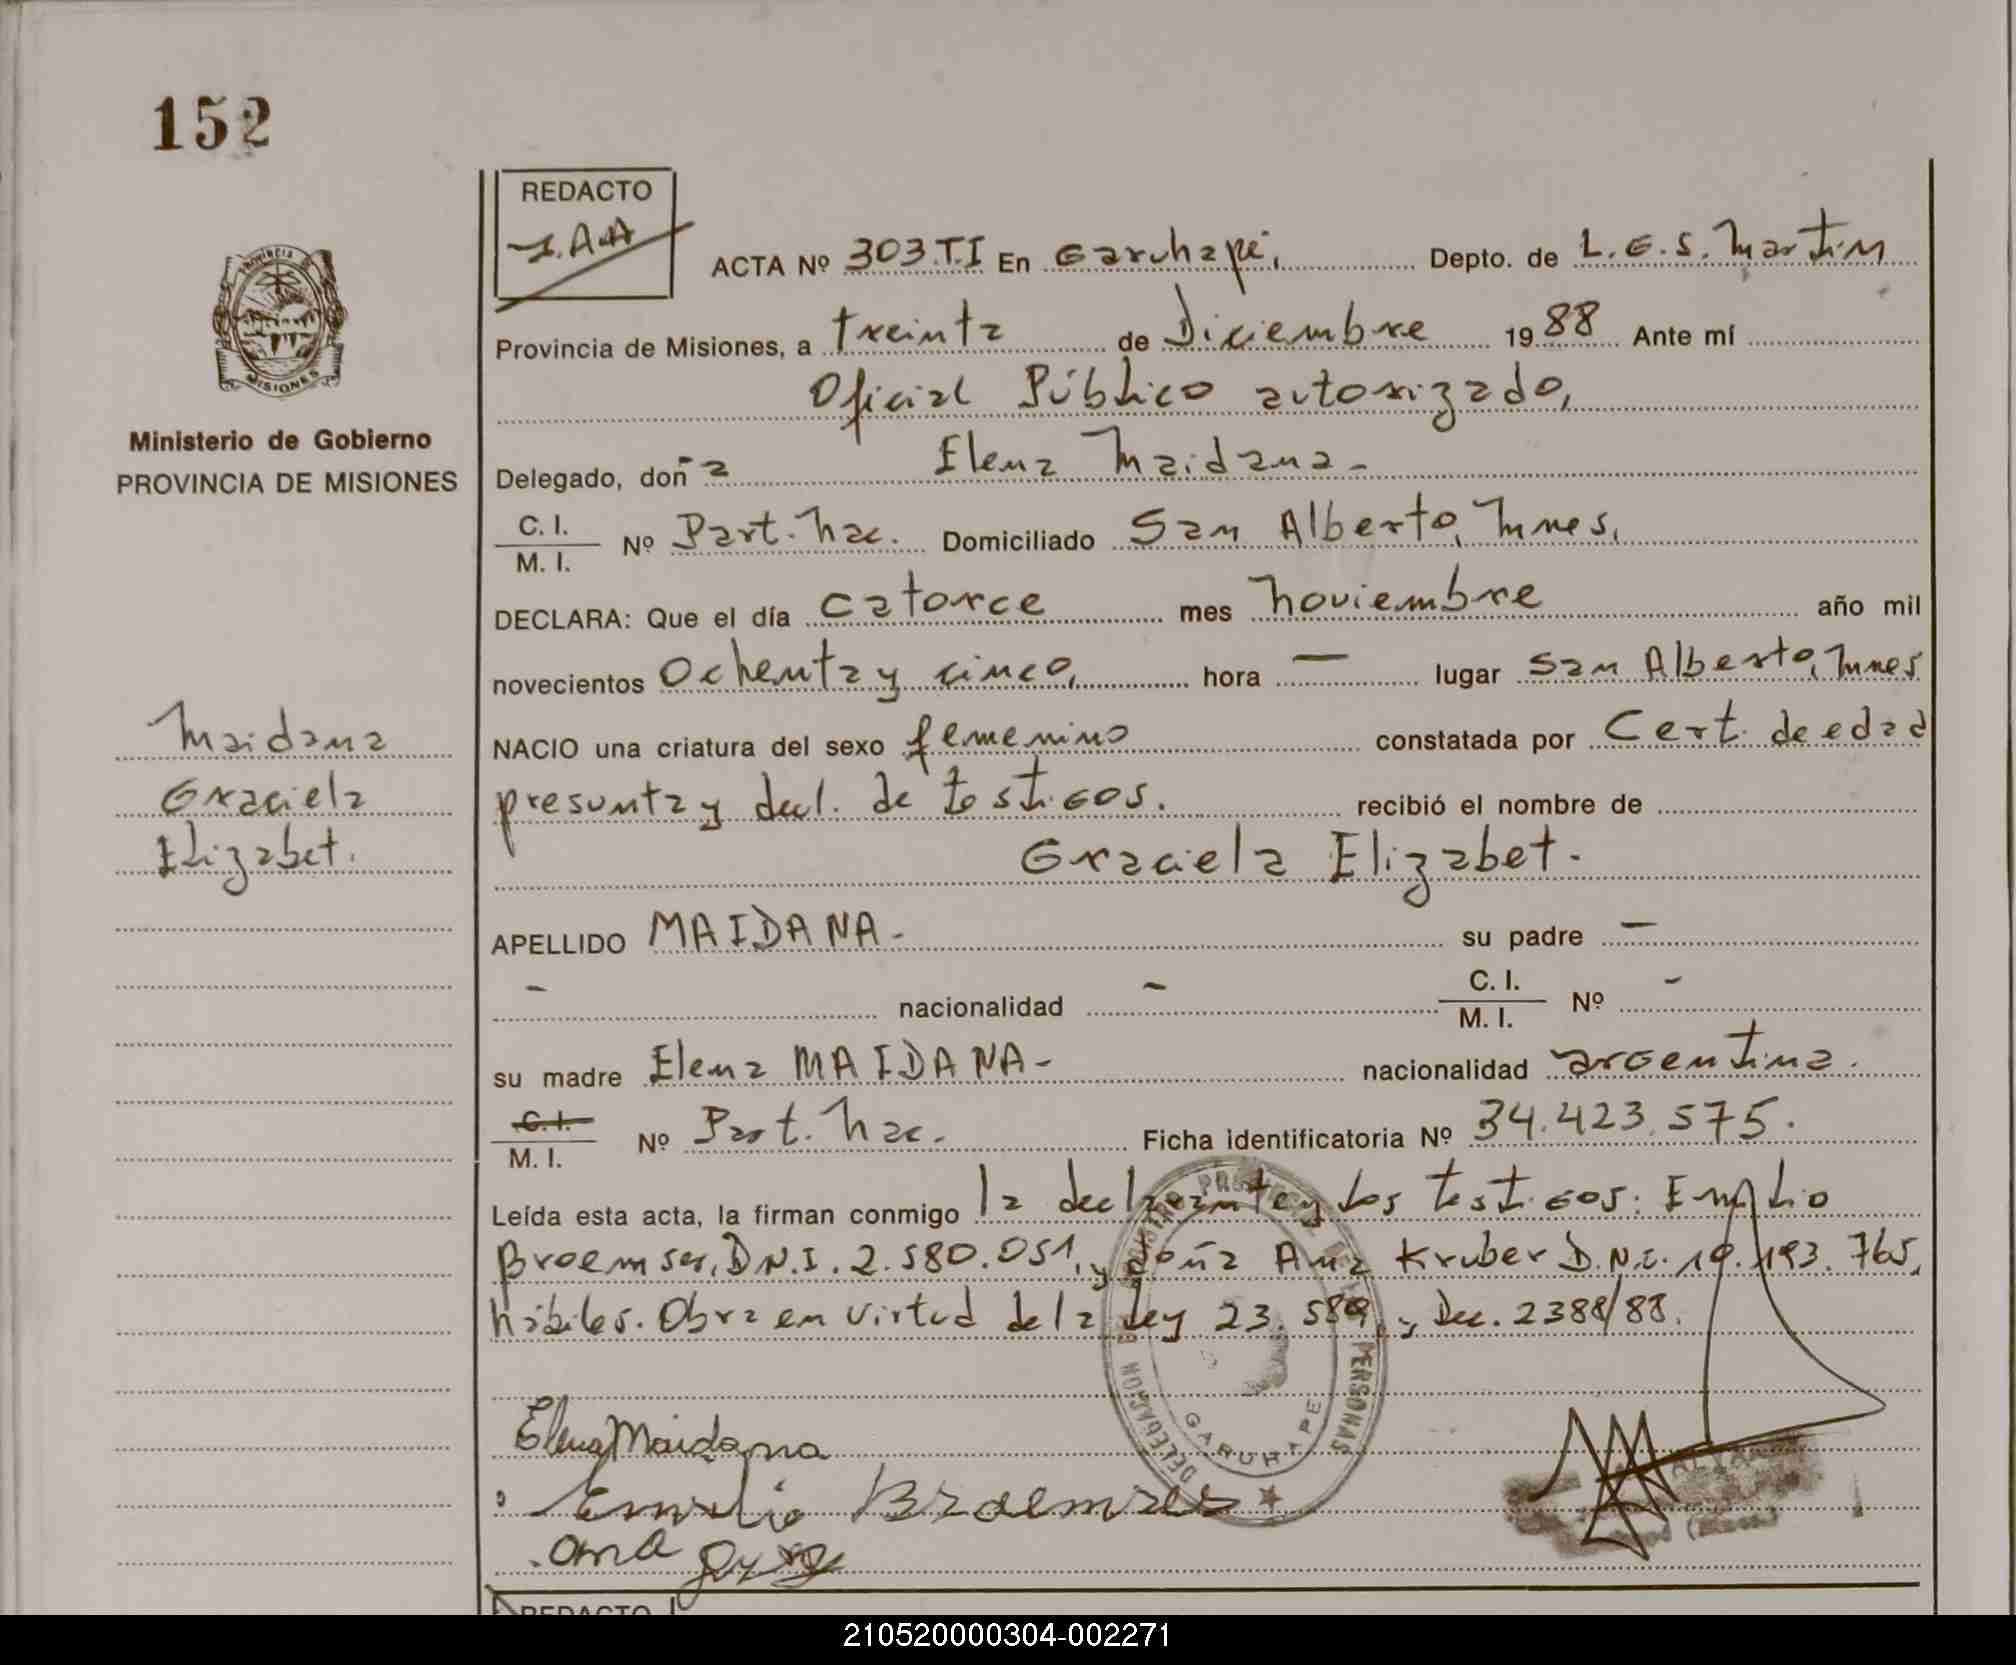 152
REDACTO
I.A.A
ACTA Nº 303.T.I En Garuhapé, Depto. de L.G.S. Martin
Provincia de Misiones, a treinta de Diciembre 1988 Ante mí
Oficial Público autorizado,
Provincia
MISIONES
Ministerio de Gobierno
PROVINCIA DE MISIONES
Delegado, doña Elena Maidana-
C. I.
M. I. Nº Part. Nac. Domiciliado San Alberto, Mnes,
DECLARA: Que el día catorce mes Noviembre año mil
novecientos Ochenta y cinco, hora — lugar San Alberto, Mnes
NACIO una criatura del sexo femenino constatada por Cert. de edad
presunta y decl. de testigos. recibió el nombre de
Graciela Elizabet.
Maidana
Graciela
Elizabet.
APELLIDO MAIDANA- su padre —
- nacionalidad - C. I. M. I. Nº -
su madre Elena MAIDANA- nacionalidad argentina.
C. I.
M. I. Nº Part. Nac. Ficha identificatoria Nº 34.423.575.
Leída esta acta, la firman conmigo la declarante y los testigos: Emilio
Broemser, D.N.I. 2.580.051, y doña Ana Kruber D.N.I. 19.193.765,
hábiles. Obra en virtud de la Ley 23.589, y Dec. 2388/88.
DELEGACION PERSONAS
GARUHAPE
Elena Maidana
Emilio Broemser
Ana
REDACTO
210520000304-002271